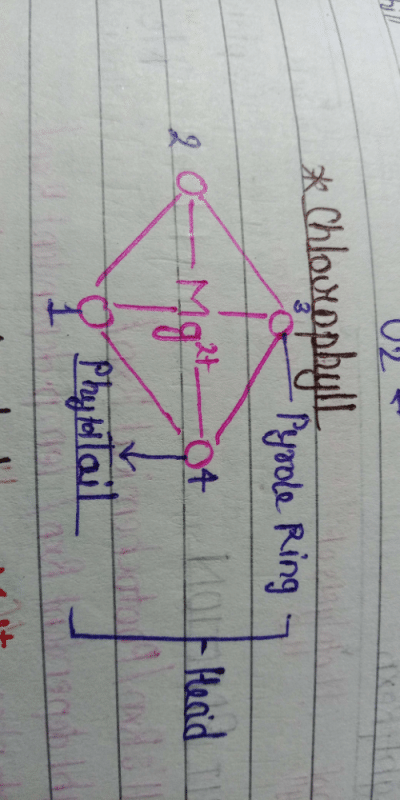 O2
* Chlorophyll
3
Pyrole Ring
2
Mg2+
4
Head
1
Phytol Tail